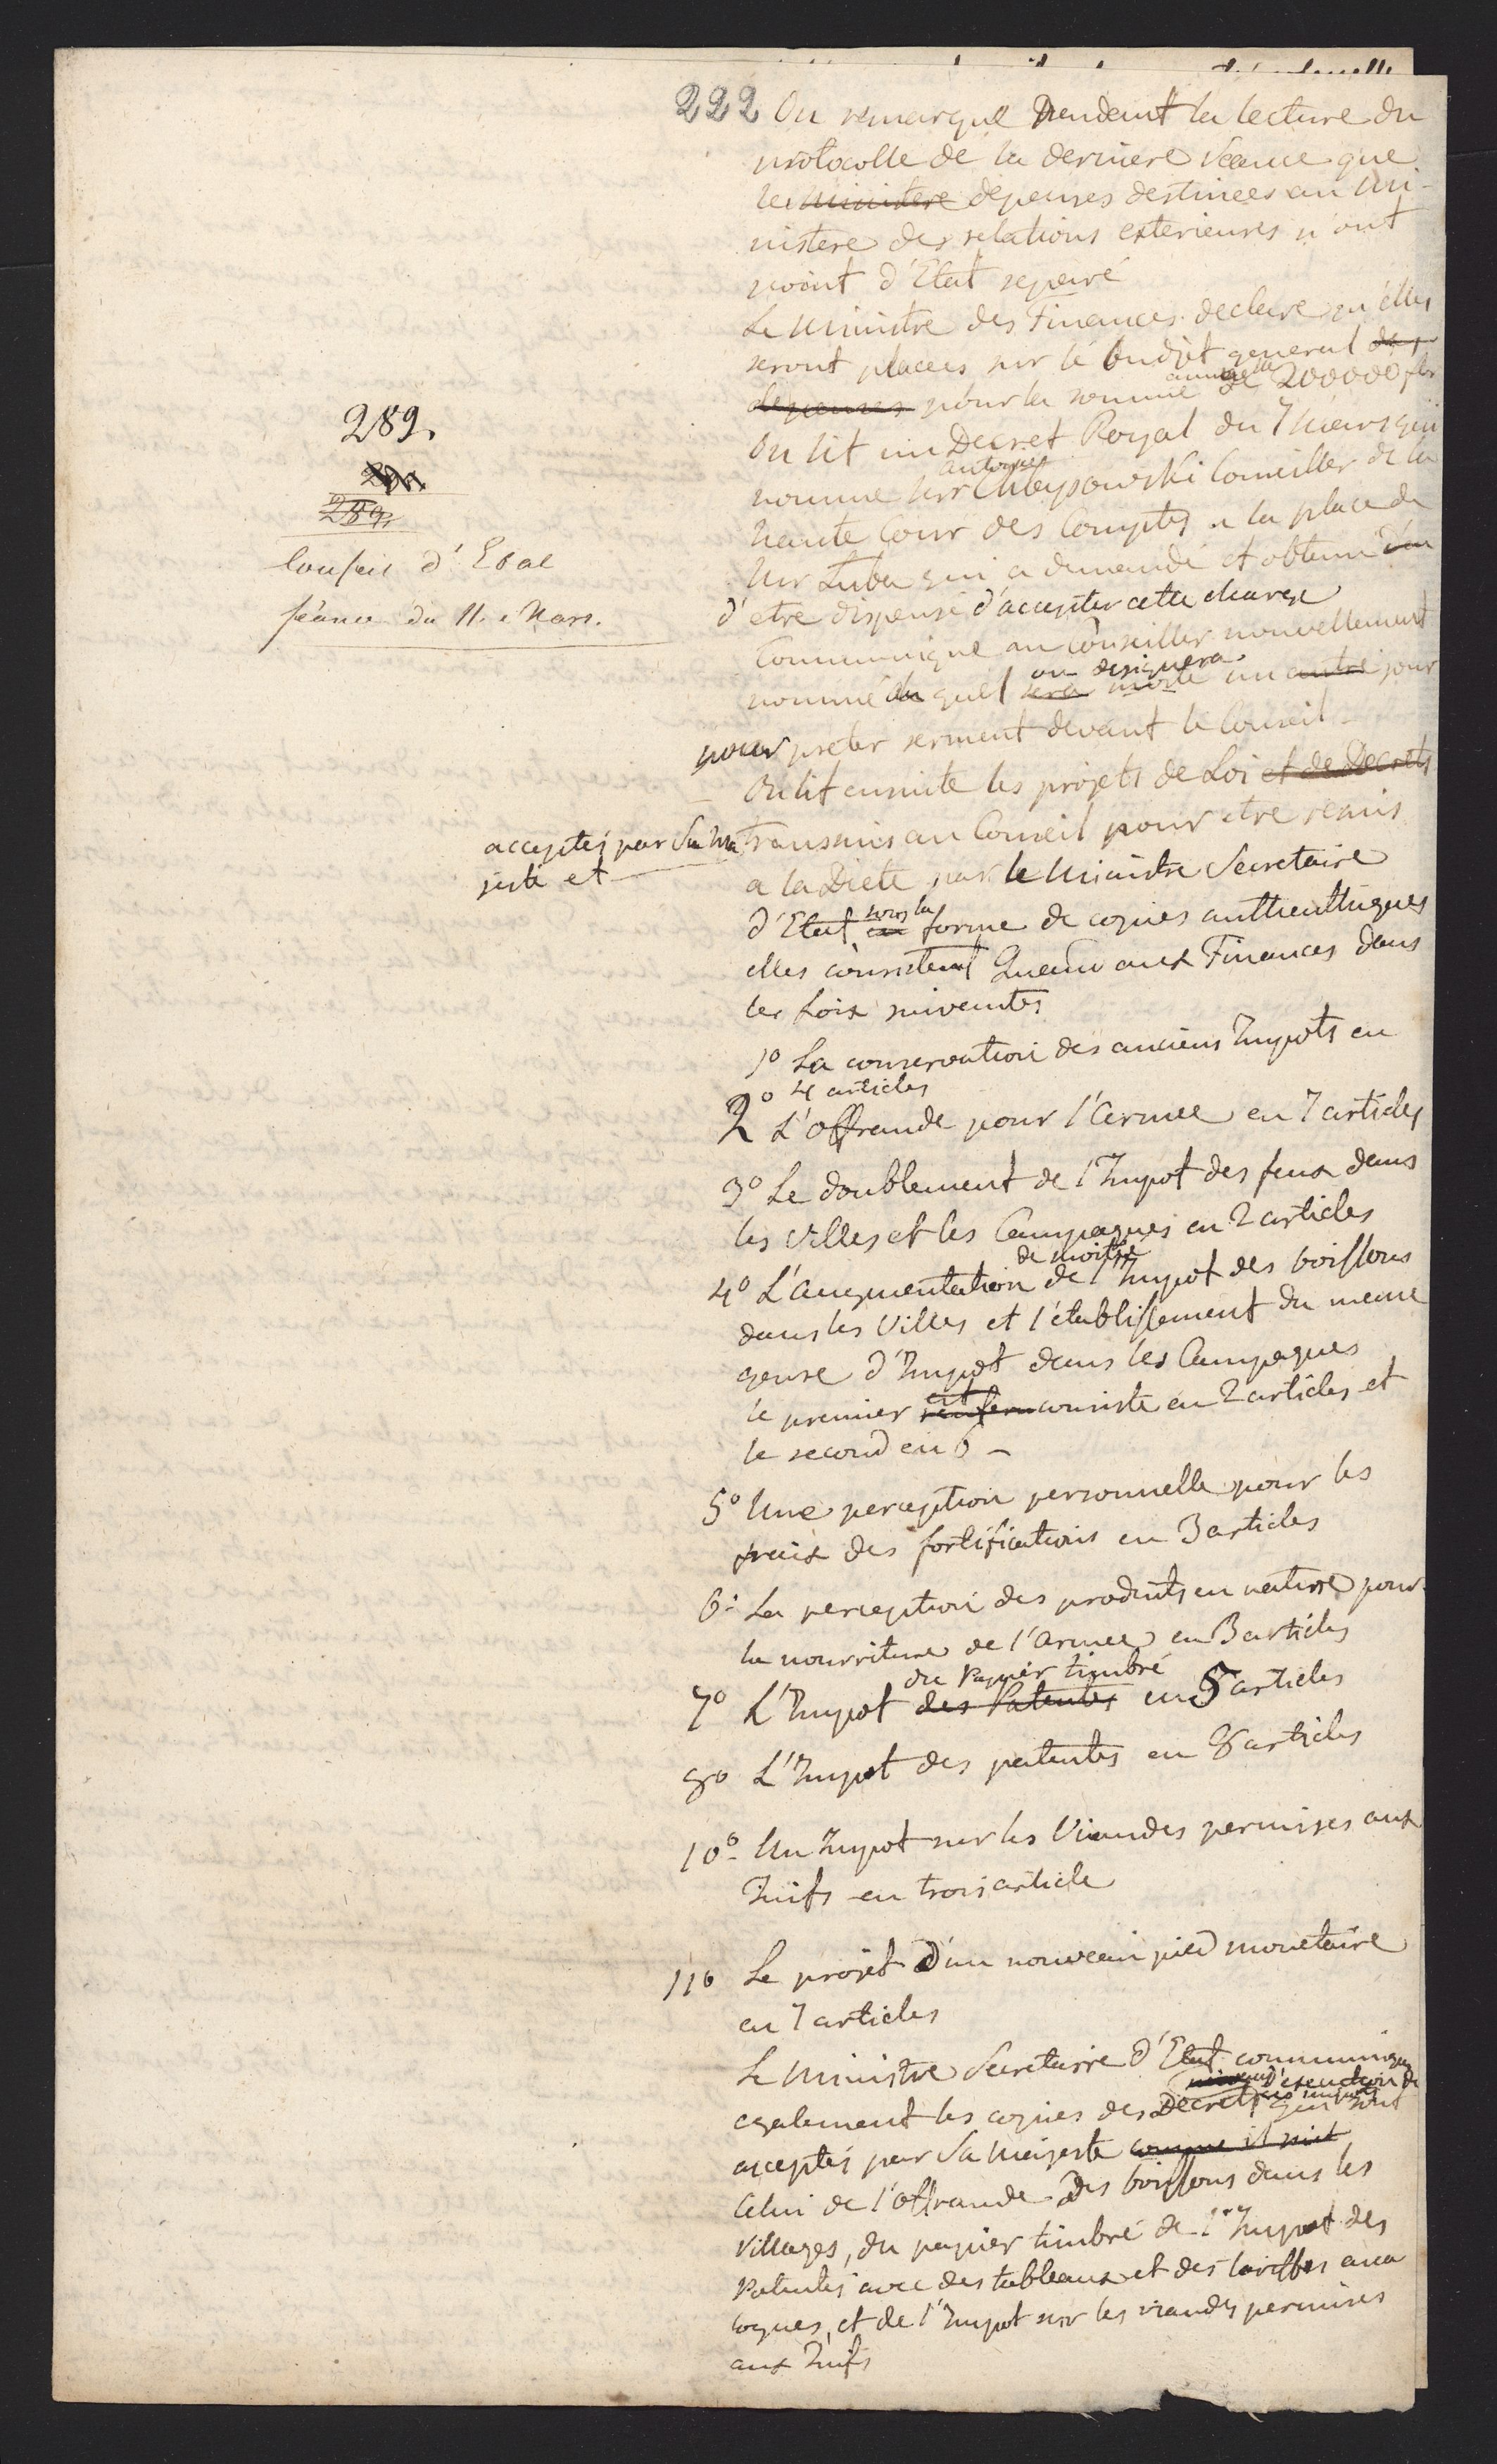 222
289.
289.
Conseil d'Etat
séance du 11. Mars.
On remarque Pendant la lecture du
protocolle de la derniere Séance que
les ministere depenses destinées au Mi-
nistere des relations exterieures n'ont
point d'Etat separé
Le Ministre des Finances declare qu'elles
seront placées sur le budjet general des
depenses pour la somme annuelle de 200000 fl
On lit un Decret Royal du 7 Mars qui
nomme Mr Antoine Conseiller de la
haute Cour des Comptes a la place de
Mr Luba qui a demandé et obtenu d'en
d'etre dispensé d'accepter cette charge
Communiqué au Conseiller nouvellement
nommé au quel sera invité on designera un autre jour
pour preter serment devant le Conseil -
On lit ensuite les projets de Loi et de Decrets
acceptés par Sa Ma
jesté et
Transmis au Conseil pour etre remis
a la Diete par le Ministre Secretaire
d'Etat en sous la forme de copies authenthiques
elles consistent Quand aux Finances dans
les Loix suivantes
1º La conservation des anciens Impots en
4 articles
2º L'offrande pour l'Armee en 7 articles
3º Le doublement de l'Impot des feux dans
les Villes et les Campagnes en 2 articles
4º L'augmentation de moitié de l'Impot des boissons
dans les Villes et l'établissement du meme
genre d'Impot dans les Campagnes
le premier renferm consiste en 2 articles et
le second en 6 -
5º Une perception personnelle pour les
fraix des fortifications en 3 articles
6º La perception des produits en nature pour
la nourriture de l'Armee en 3 articles
7º L'Impot des Patentes du Papier timbré en 5 articles
8º L'Impot des patentes en 8 articles
10º Un Impot sur les Viandes permises aux
Juifs en trois article
11º Le projet d'un nouveau pied monetaire
en 7 articles
Le Ministre Secretaire d'Etat communique
egalement les copies des Decrets d'execution de ces impots qui sont
acceptés par Sa Majesté comme il suit
Celui de l'offrande Des boissons dans les
Villages, du papier timbré de l'Impot des
Patentes avec des tableaux et des tariffes ana
logues, et de l'Impot sur les viandes permises
aux Juifs